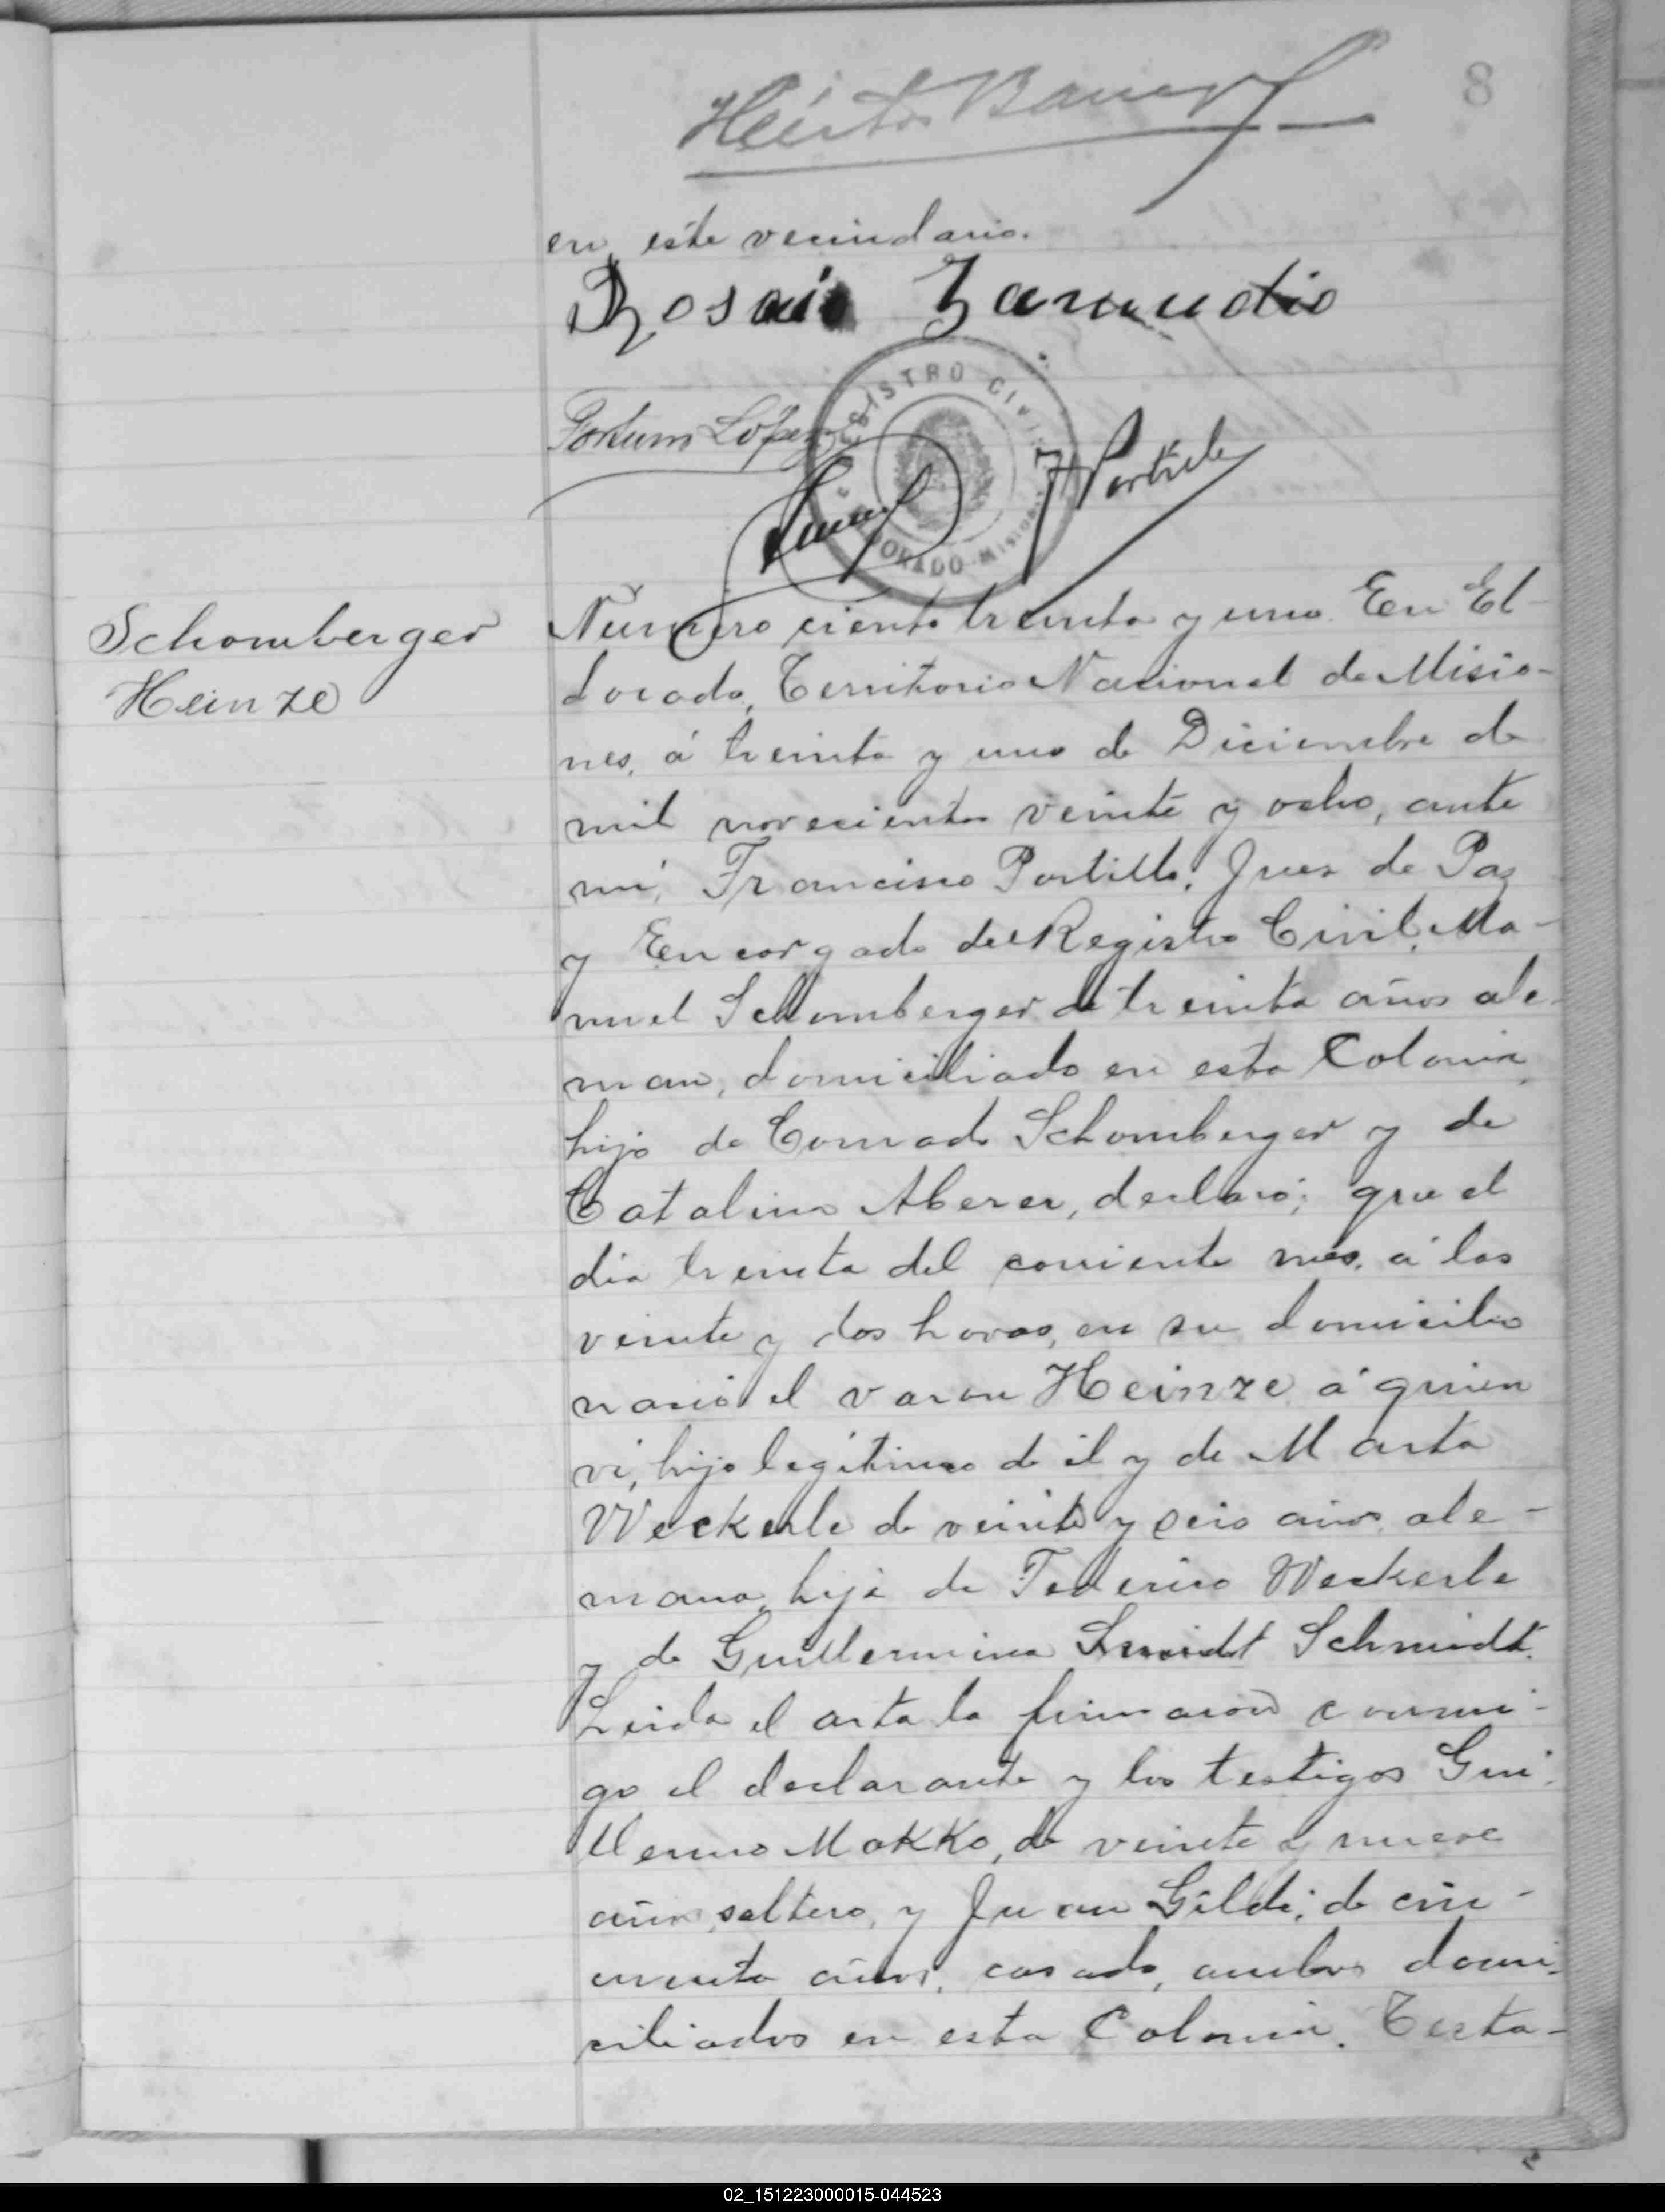 8
en este vecindario.
Rosario Zamudio
REGISTRO CIVIL
DORADO - Misiones
Fortun López
FPortillo
Schomberger
Heinze
Número ciento treinta y uno. En El-
dorado, Territorio Nacional de Misio-
nes, á treinta y uno de Diciembre de
mil novecientos veinte y ocho, ante
mi, Francisco Portillo, Juez de Paz
y Encargado del Registro Civil, Ma-
nuel Schomberger de treinta años ale-
man, domiciliado en esta Colonia,
hijo de Conrado Schomberger y de
Catalina Aberer, declaró; que el
dia treinta del corriente mes, á las
veinte y dos horas, en su domicilio
nació el varon Heinze á quien
vi, hijo legítimo de él y de Marta
Weckerle de veinte y seis años, ale-
mana, hija de Federico Weckerle
y de Guillermina Smidt Schmidt.
Leida el acta la firmaron conmi-
go el declarante y los testigos Gui-
llermo Mokko, de veinte y nueve
años, soltero, y Juan Gilde; de cin-
cuenta años, casado, ambos domi-
ciliados en esta Colonia. Testa-
02_151223000015-044523